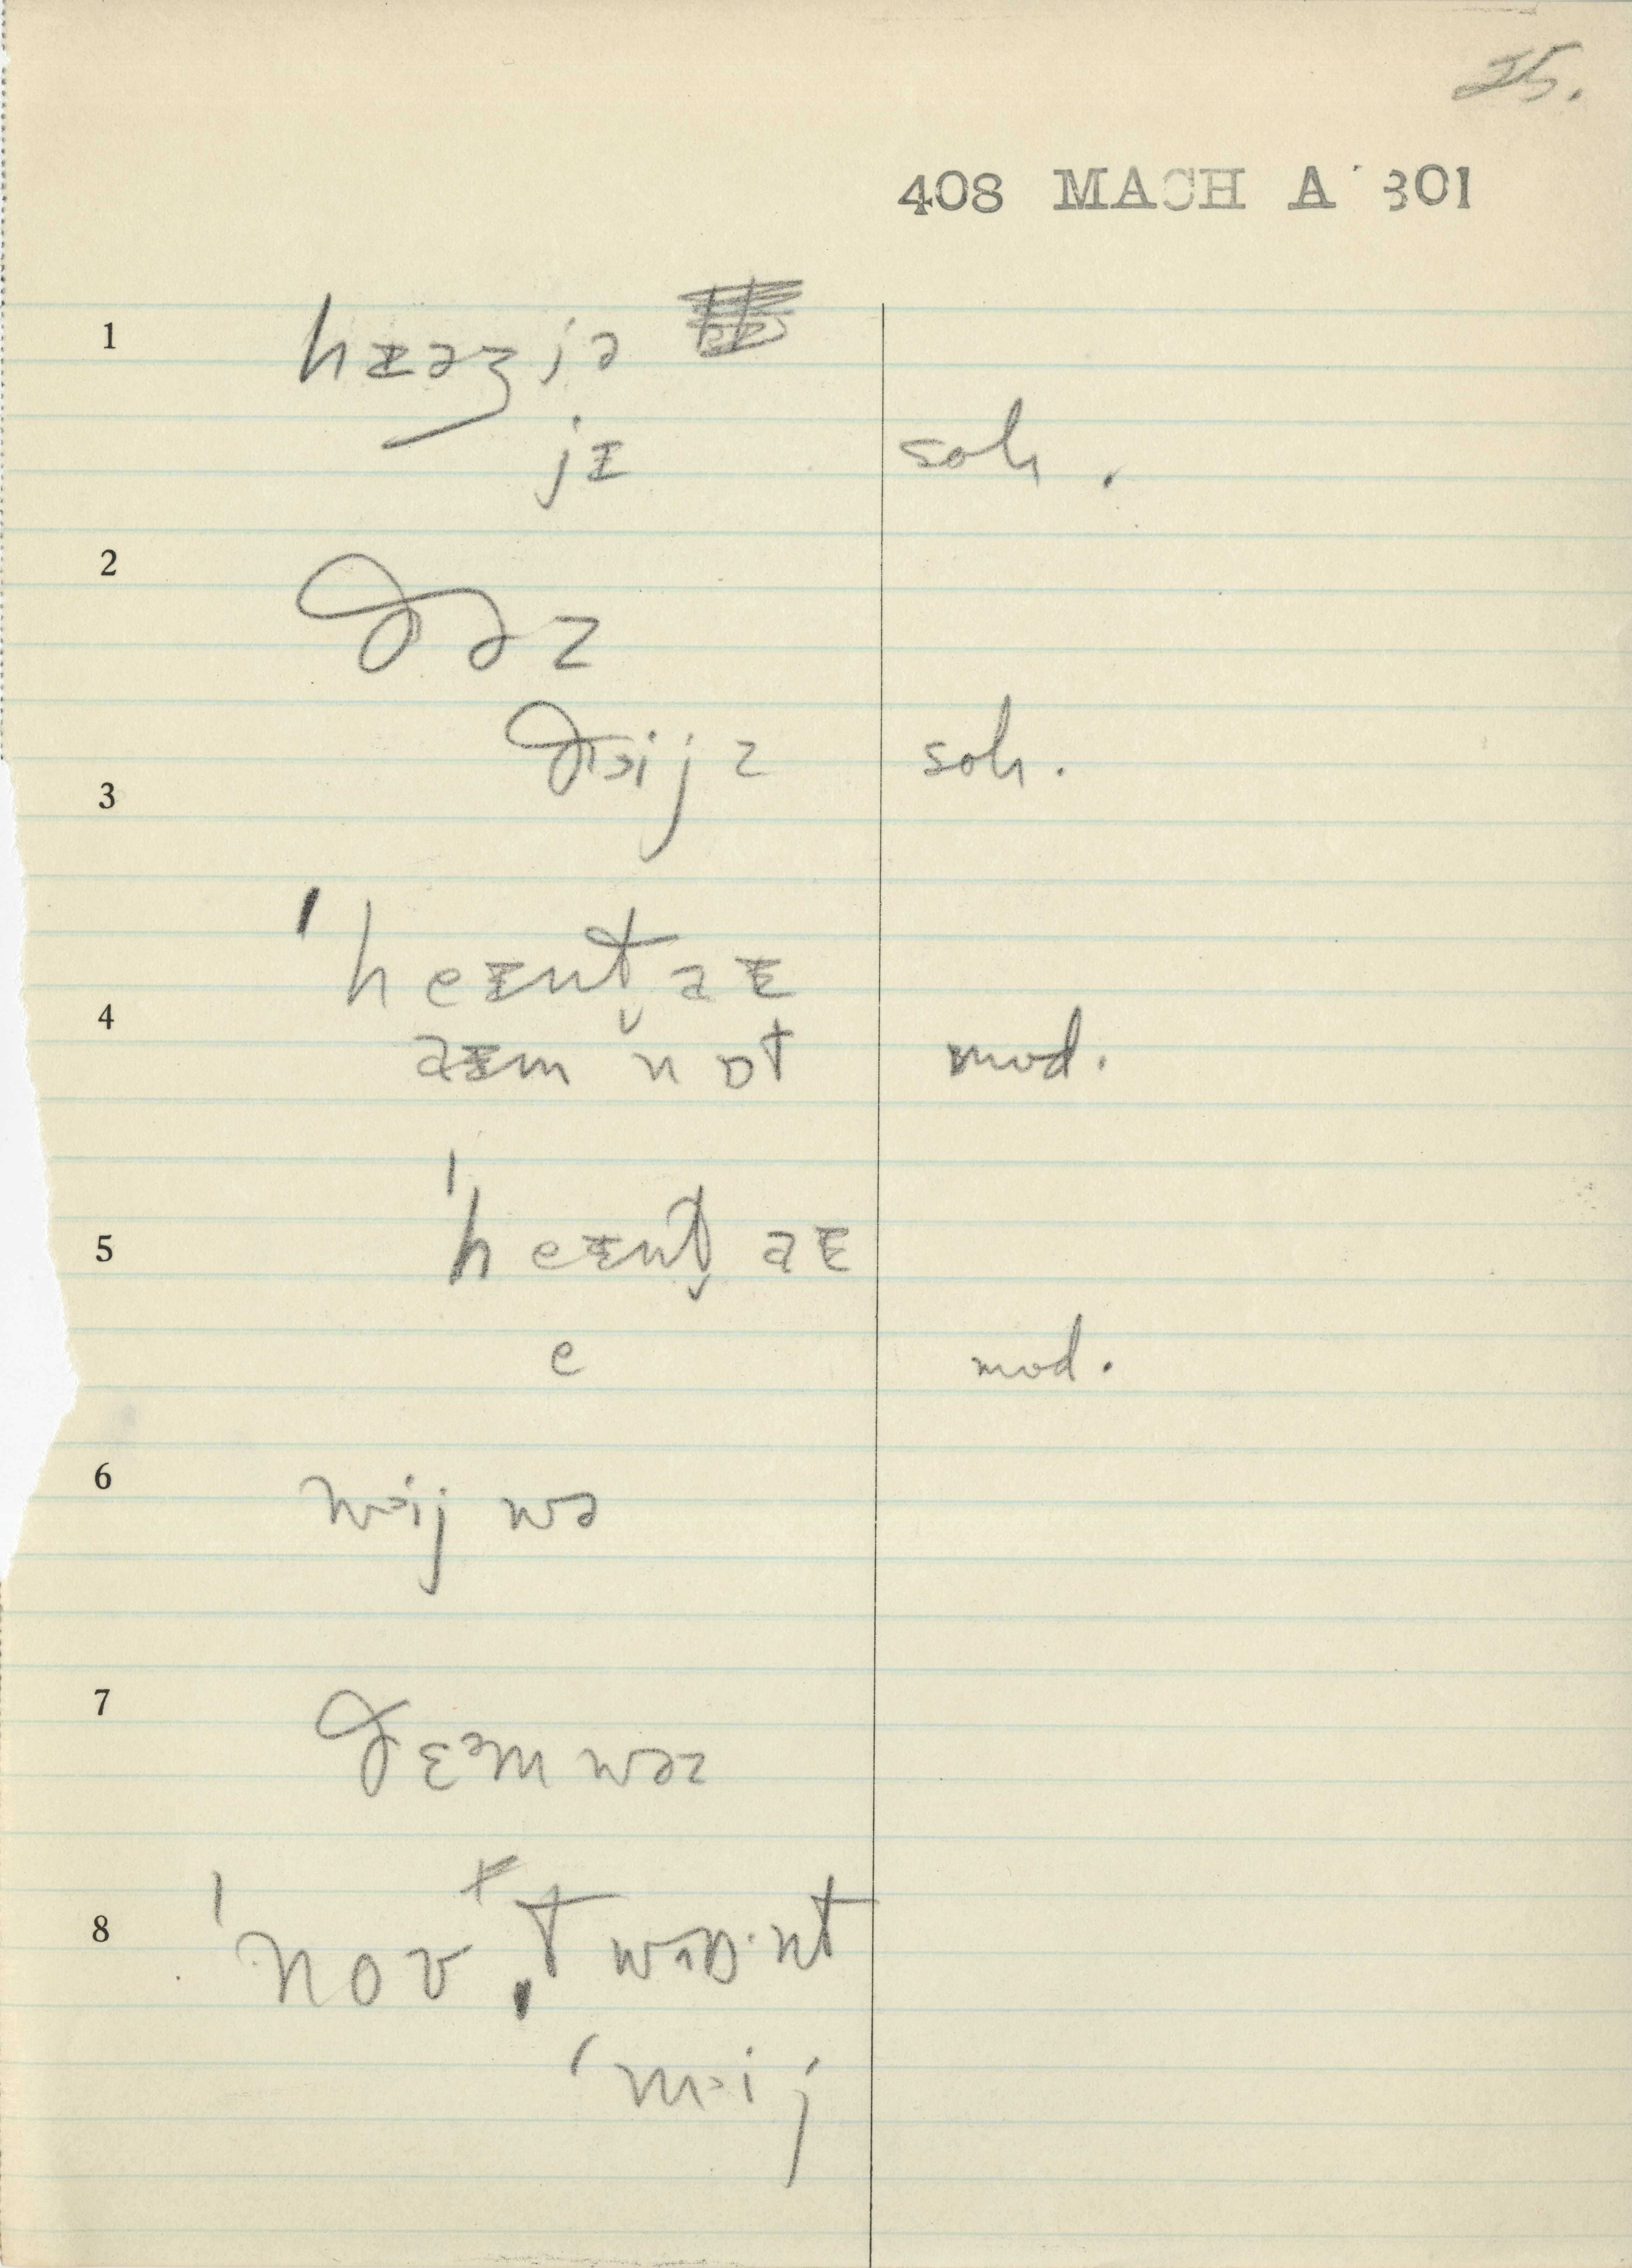 25.
408 MACH A 301
1 hɪəʒjə
jɪ soh.
2 ðəz
ðəijz soh.
3
'heɪnt̬aɪ
4 aɪm nɒt mod.
'heɪnt̬aɪ
5
e mod.
6 wəij wə
7 ðɛəm wəz
8 'nov t wɒnt
'məij